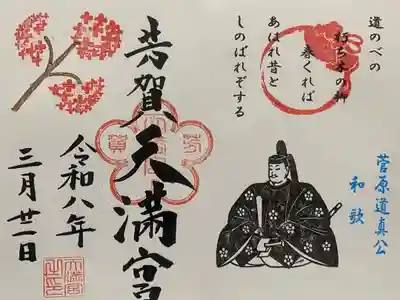 道のべの
朽ち木の柳
春くれば
あはれ昔と
しのばれぞする
菅原道真公
和歌
芳賀天満宮
令和八年
三月廿一日